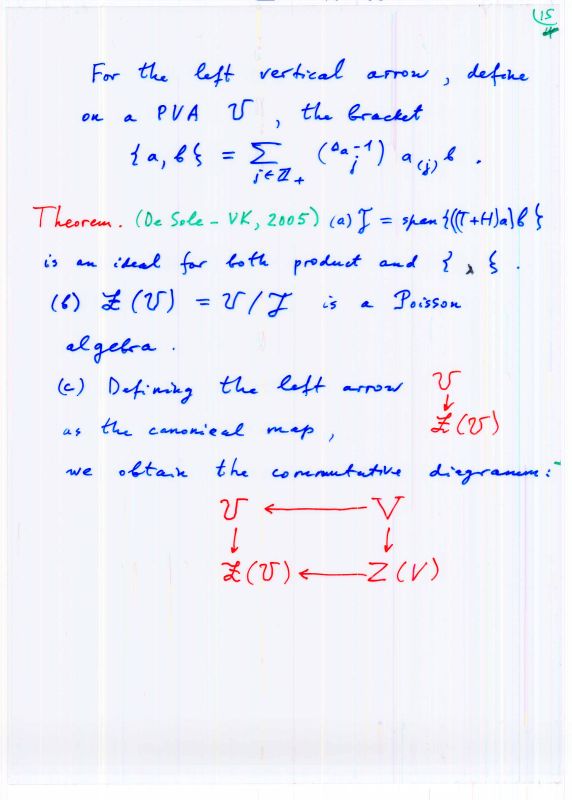 15
4
For the left vertical arrow, define
on a PVA 𝒱, the bracket
{a, b} = Σ_{j∈ℤ₊} (Δa-1 j) a_(j) b .
Theorem. (De Sole – VK, 2005) (a) J = span{((T+H)a)b}
is an ideal for both product and { , }.
(b) Ƶ(𝒱) = 𝒱/J is a Poisson
algebra.
(c) Defining the left arrow 𝒱
↓
as the canonical map, Ƶ(𝒱)
we obtain the commutative diagramm:
𝒱 ← V
↓ ↓
Ƶ(𝒱) ← Z(V)